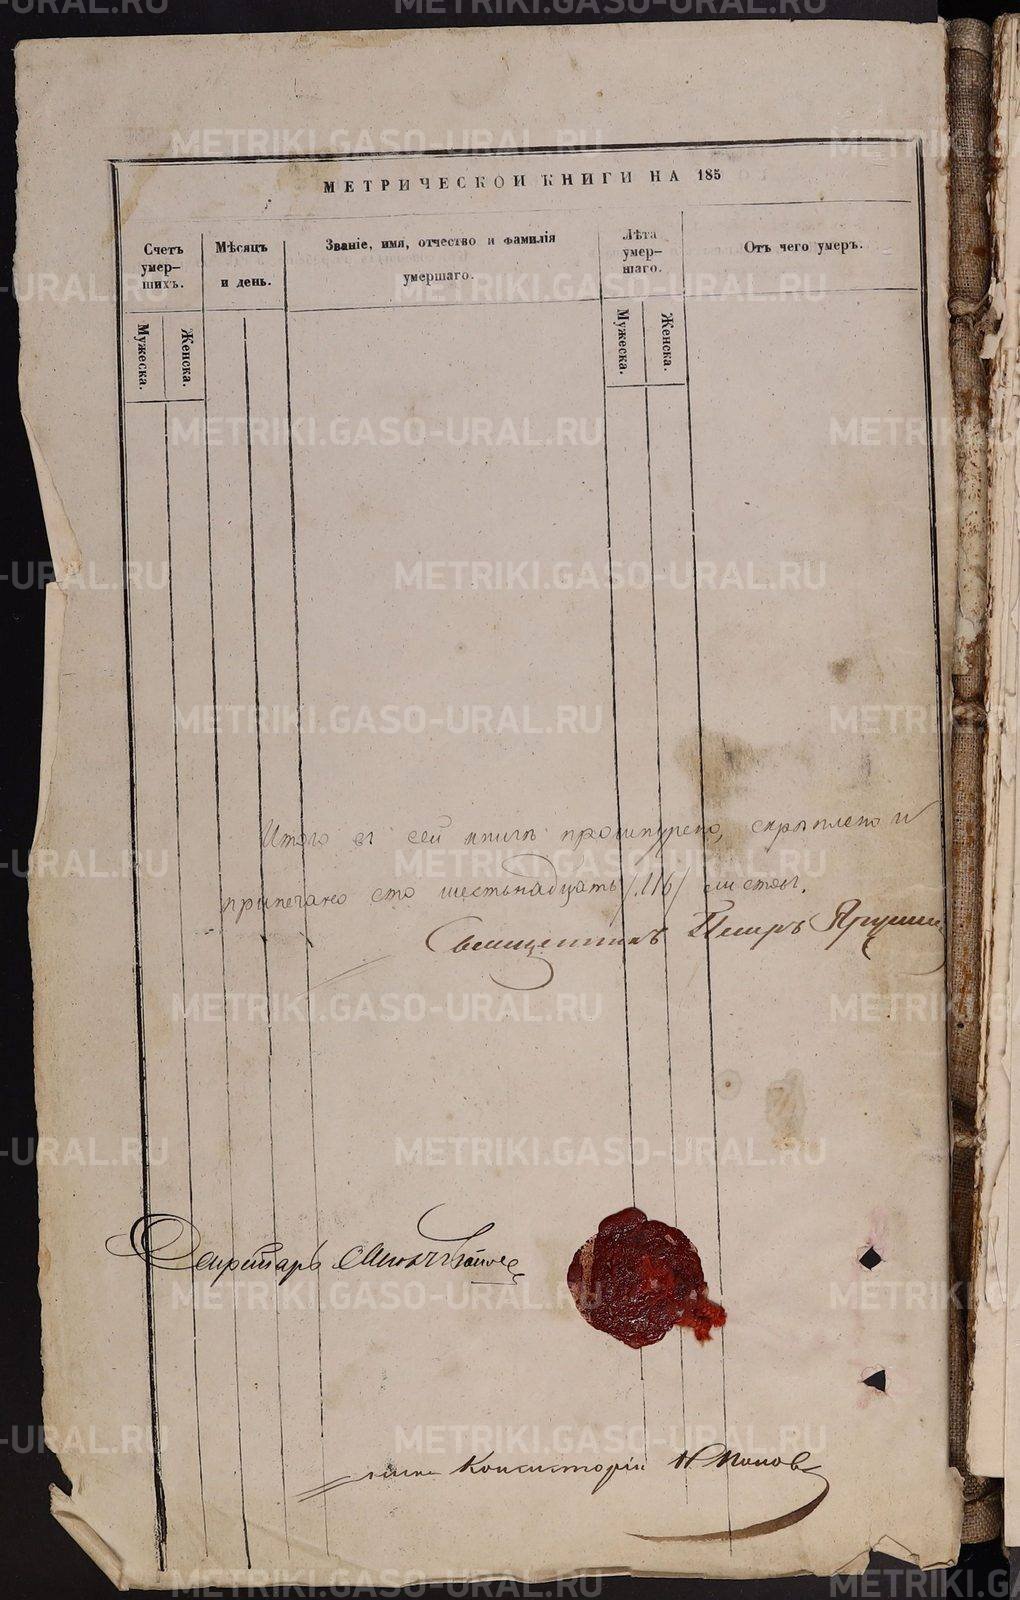 МЕТРИЧЕСКОЙ КНИГИ НА 185
Счетъ умер-шихъ.
Мѣсяцъ и день.
Званіе, имя, отчество и фамилія умершаго.
Лѣта умер-шаго.
Отъ чего умеръ.
Мужеска.
Женска.
Мужеска.
Женска.
Итого въ сей книгѣ прошнурено, скрѣплено и
припечатано сто шестьнадцать /116/ листовъ.
Священникъ Петръ
Секретарь
Консисторіи Н Поповъ
METRIKI.GASO-URAL.RU